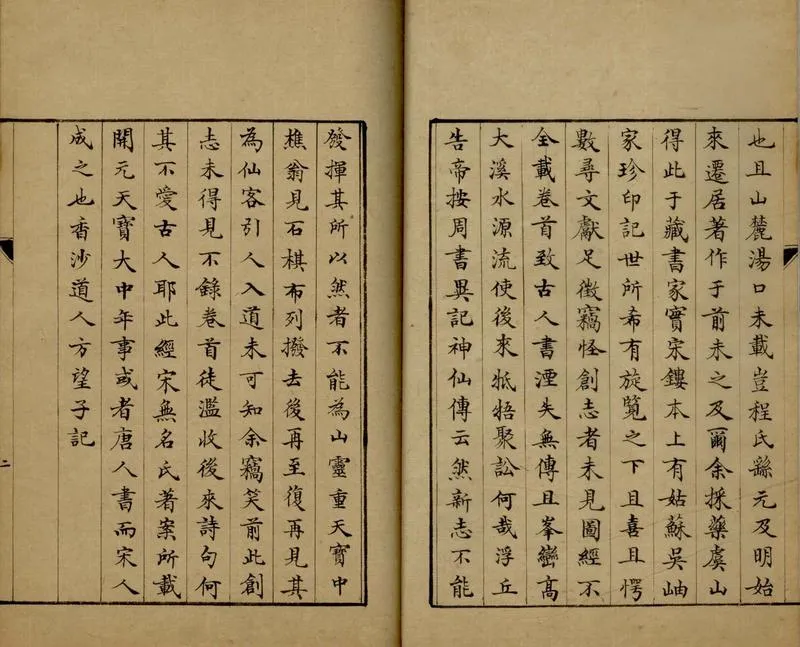 也且山麓湯口未載豈程氏繇元及明始
來遷居著作于前未之及爾余採藥虞山
得此于藏書家實宋鏤本上有姑蘇吳岫
家珍印記世所希有旋覧之下且喜且愕
數尋文獻足徵竊怪創志者未見圖經不
全載卷首致古人書湮失無傳且峯巒高
大溪水源流使後來牴牾聚訟何哉浮丘
告帝按周書異記神仙傳云然新志不能
發揮其所以然者不能為山靈重天寶中
樵翁見石棋布列撥去後再至復再見其
為仙客引人入道未可知余竊笑前此創
志未得見不錄卷首徒濫收後來詩句何
其不愛古人耶此經宋無名氏著案所載
開元天寶大中年事或者唐人書而宋人
成之也香沙道人方望子記
二